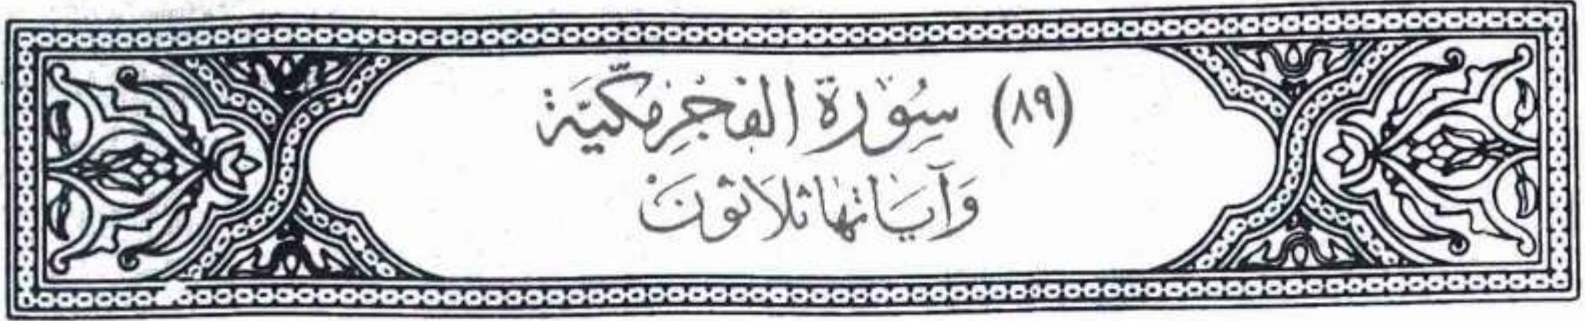 (٨٩) سُورَة الفَجْرِ مَكِّيَّة
وَآيَاتهَا ثَلاَثونَ